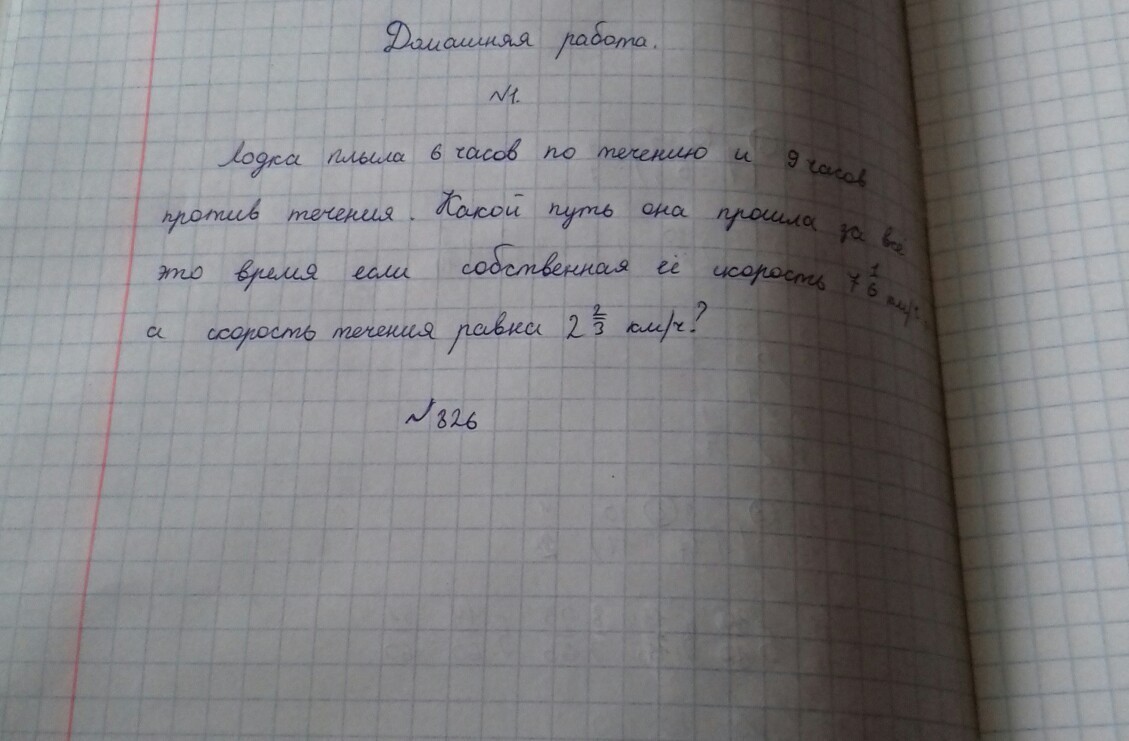 Домашняя работа.
№1.
Лодка плыла 6 часов по течению и 9 часов
против течения. Какой путь она прошла за всё
это время если собственная её скорость 7 1/6 км/ч,
а скорость течения равна 2 2/3 км/ч?
№826